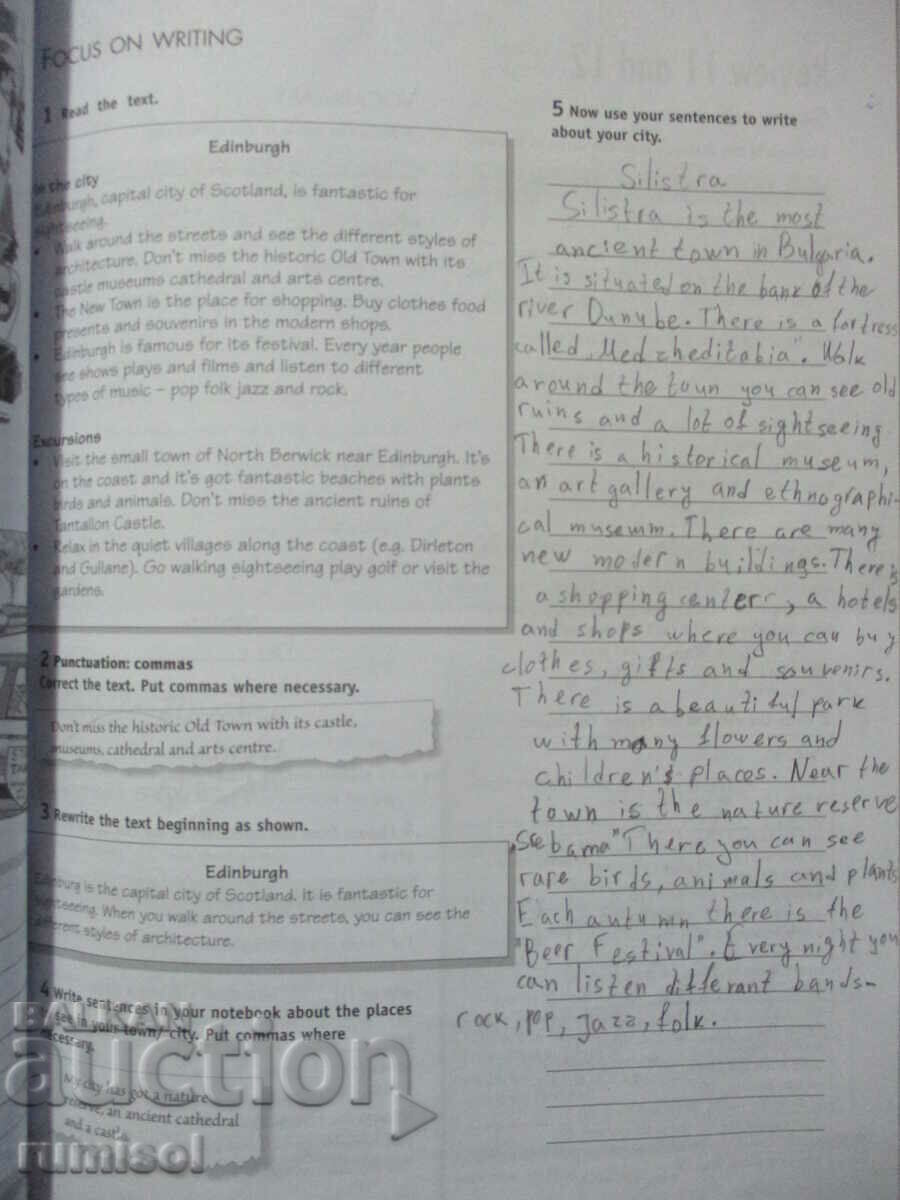 FOCUS ON WRITING
1 Read the text.
Edinburgh
In the city
Edinburgh, capital city of Scotland, is fantastic for
sightseeing.
• Walk around the streets and see the different styles of
architecture. Don't miss the historic Old Town with its
castle museums cathedral and arts centre.
• The New Town is the place for shopping. Buy clothes food
presents and souvenirs in the modern shops.
• Edinburgh is famous for its festival. Every year people
see shows plays and films and listen to different
types of music – pop folk jazz and rock.
Excursions
• Visit the small town of North Berwick near Edinburgh. It's
on the coast and it's got fantastic beaches with plants
birds and animals. Don't miss the ancient ruins of
Tantallon Castle.
• Relax in the quiet villages along the coast (e.g. Dirleton
and Gullane). Go walking sightseeing play golf or visit the
gardens.
2 Punctuation: commas
Correct the text. Put commas where necessary.
Don't miss the historic Old Town with its castle,
museums, cathedral and arts centre.
3 Rewrite the text beginning as shown.
Edinburgh
Edinburg is the capital city of Scotland. It is fantastic for
sightseeing. When you walk around the streets, you can see the
different styles of architecture.
4 Write sentences in your notebook about the places
to see in your town/ city. Put commas where
necessary.
My city has got a nature
reserve, an ancient cathedral
and a castle.
5 Now use your sentences to write
about your city.
Silistra
Silistra is the most
ancient town in Bulgaria.
It is situated on the bank of the
river Dunube. There is a fortress
called „Medzheditabia". Walk
around the toun you can see old
ruins and a lot of sightseeing.
There is a historical museum,
an art gallery and ethnographi-
cal museumm. There are many
new modern buildings. There is
a shopping center, a hotels
and shops where you can buy
clothes, gifts and souvenirs.
There is a beautiful park
with many flowers and
children's places. Near the
town is the nature reserve
„Srebarna" There you can see
rare birds, animals and plants
Each autumn there is the
"Beer Festival". Every night you
can listen differant bands-
rock, pop, jazz, folk.
BALKAN
auction
rumisol